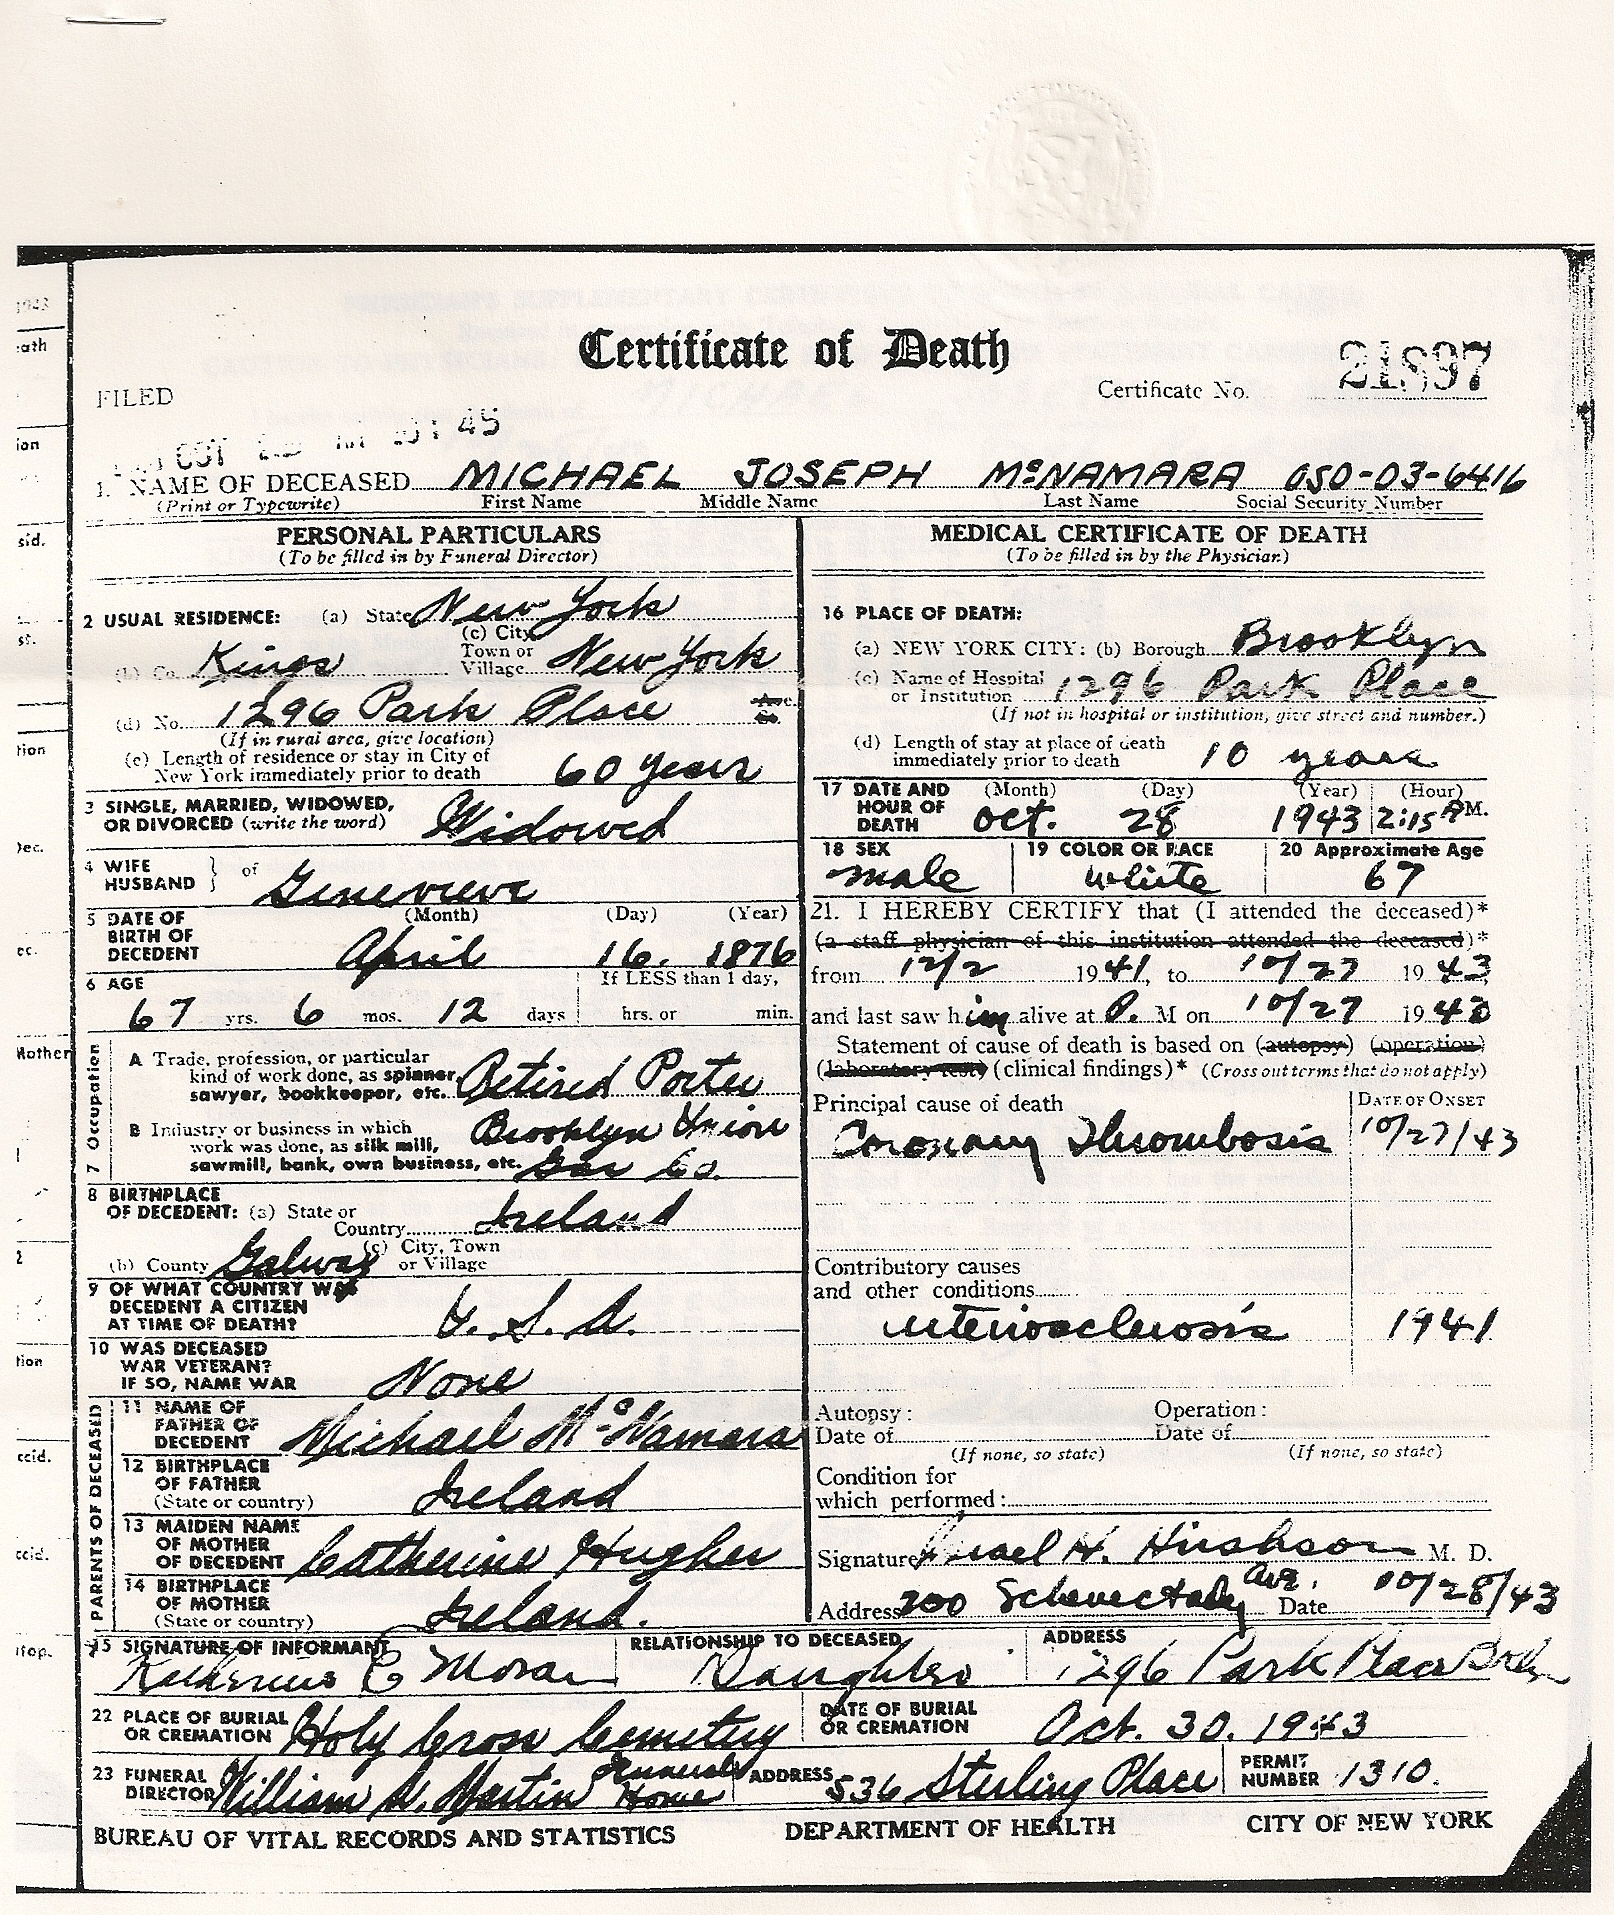 Certificate of Death
FILED
Certificate No. 21897
OCT 45
1. NAME OF DECEASED MICHAEL JOSEPH McNAMARA 050-03-6416
(Print or Typewrite) First Name Middle Name Last Name Social Security Number
PERSONAL PARTICULARS
(To be filled in by Funeral Director)
2 USUAL RESIDENCE: (a) State New York
(b) Co. Kings (c) City, Town or Village New York
(d) No. 1296 Park Place Ave. St.
(If in rural area, give location)
(e) Length of residence or stay in City of
New York immediately prior to death 60 years
3 SINGLE, MARRIED, WIDOWED,
OR DIVORCED (write the word) Widowed
4 WIFE
HUSBAND } of Genevieve
5 DATE OF BIRTH OF DECEDENT (Month) (Day) (Year)
April 16. 1876
6 AGE If LESS than 1 day,
67 yrs. 6 mos. 12 days hrs. or min.
7 Occupation
A Trade, profession, or particular
kind of work done, as spinner,
sawyer, bookkeeper, etc. Retired Porter
B Industry or business in which
work was done, as silk mill,
sawmill, bank, own business, etc. Brooklyn Union Gas Co.
8 BIRTHPLACE
OF DECEDENT: (a) State or
Country Ireland
(b) County Galway (c) City, Town
or Village
9 OF WHAT COUNTRY WAS
DECEDENT A CITIZEN
AT TIME OF DEATH? U.S.A.
10 WAS DECEASED
WAR VETERAN?
IF SO, NAME WAR None
PARENTS OF DECEASED
11 NAME OF
FATHER OF
DECEDENT Michael McNamara
12 BIRTHPLACE
OF FATHER
(State or country) Ireland
13 MAIDEN NAME
OF MOTHER
OF DECEDENT Catherine Hughes
14 BIRTHPLACE
OF MOTHER
(State or country) Ireland.
MEDICAL CERTIFICATE OF DEATH
(To be filled in by the Physician)
16 PLACE OF DEATH:
(a) NEW YORK CITY: (b) Borough Brooklyn
(c) Name of Hospital
or Institution 1296 Park Place
(If not in hospital or institution, give street and number.)
(d) Length of stay at place of death
immediately prior to death 10 years
17 DATE AND HOUR OF DEATH (Month) (Day) (Year) (Hour)
Oct. 28 1943 2:15 M.
18 SEX 19 COLOR OR RACE 20 Approximate Age
male white 67
21. I HEREBY CERTIFY that (I attended the deceased)*
(a staff physician of this institution attended the deceased)*
from 12/2 1941, to 10/27 1943,
and last saw him alive at P. M on 10/27 1943
Statement of cause of death is based on (autopsy) (operation)
(laboratory test) (clinical findings)* (Cross out terms that do not apply)
Principal cause of death DATE OF ONSET
Coronary Thrombosis 10/27/43
Contributory causes
and other conditions
arteriosclerosis 1941
Autopsy: Operation:
Date of Date of
(If none, so state) (If none, so state)
Condition for
which performed:
Signature Israel H. Hirshson M. D.
Address 200 Schenectady Ave. Date 10/28/43
15 SIGNATURE OF INFORMANT RELATIONSHIP TO DECEASED ADDRESS
Katherine C Moran Daughter 1296 Park Place Bklyn
22 PLACE OF BURIAL
OR CREMATION Holy Cross Cemetery DATE OF BURIAL
OR CREMATION Oct. 30. 1943
23 FUNERAL
DIRECTOR William Martin Funeral Home ADDRESS 536 Sterling Place PERMIT
NUMBER 1310.
BUREAU OF VITAL RECORDS AND STATISTICS DEPARTMENT OF HEALTH CITY OF NEW YORK